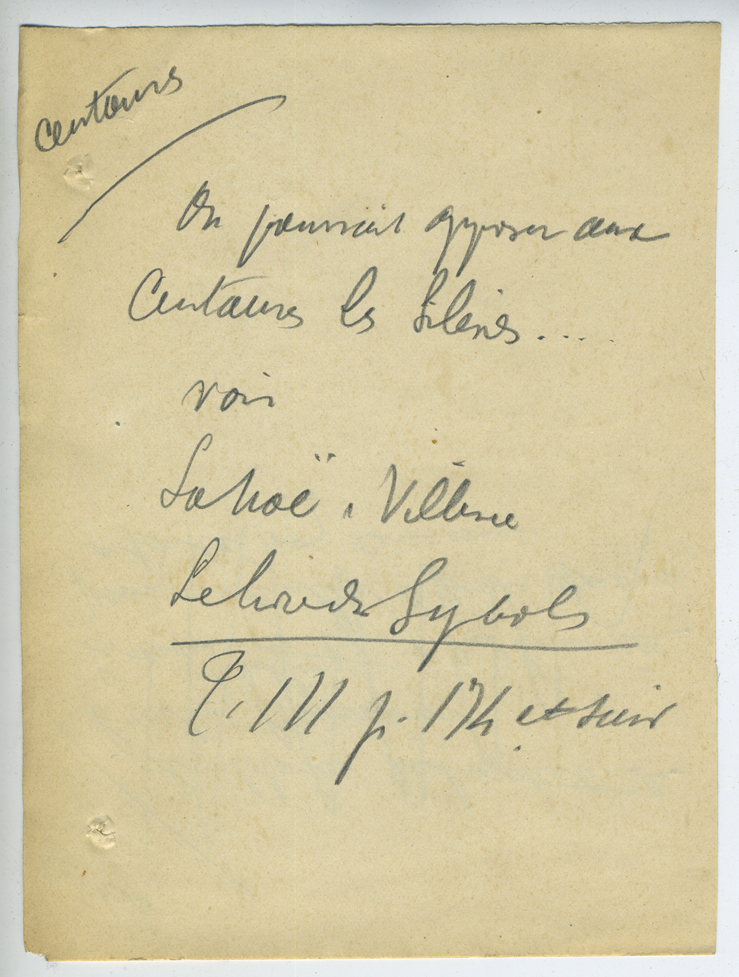 Centaures
On pourrait opposer aux
Centaures les Silènes....
voir
Lanoë-Villène
Le livre des Symboles
T. III p. 174 et suiv